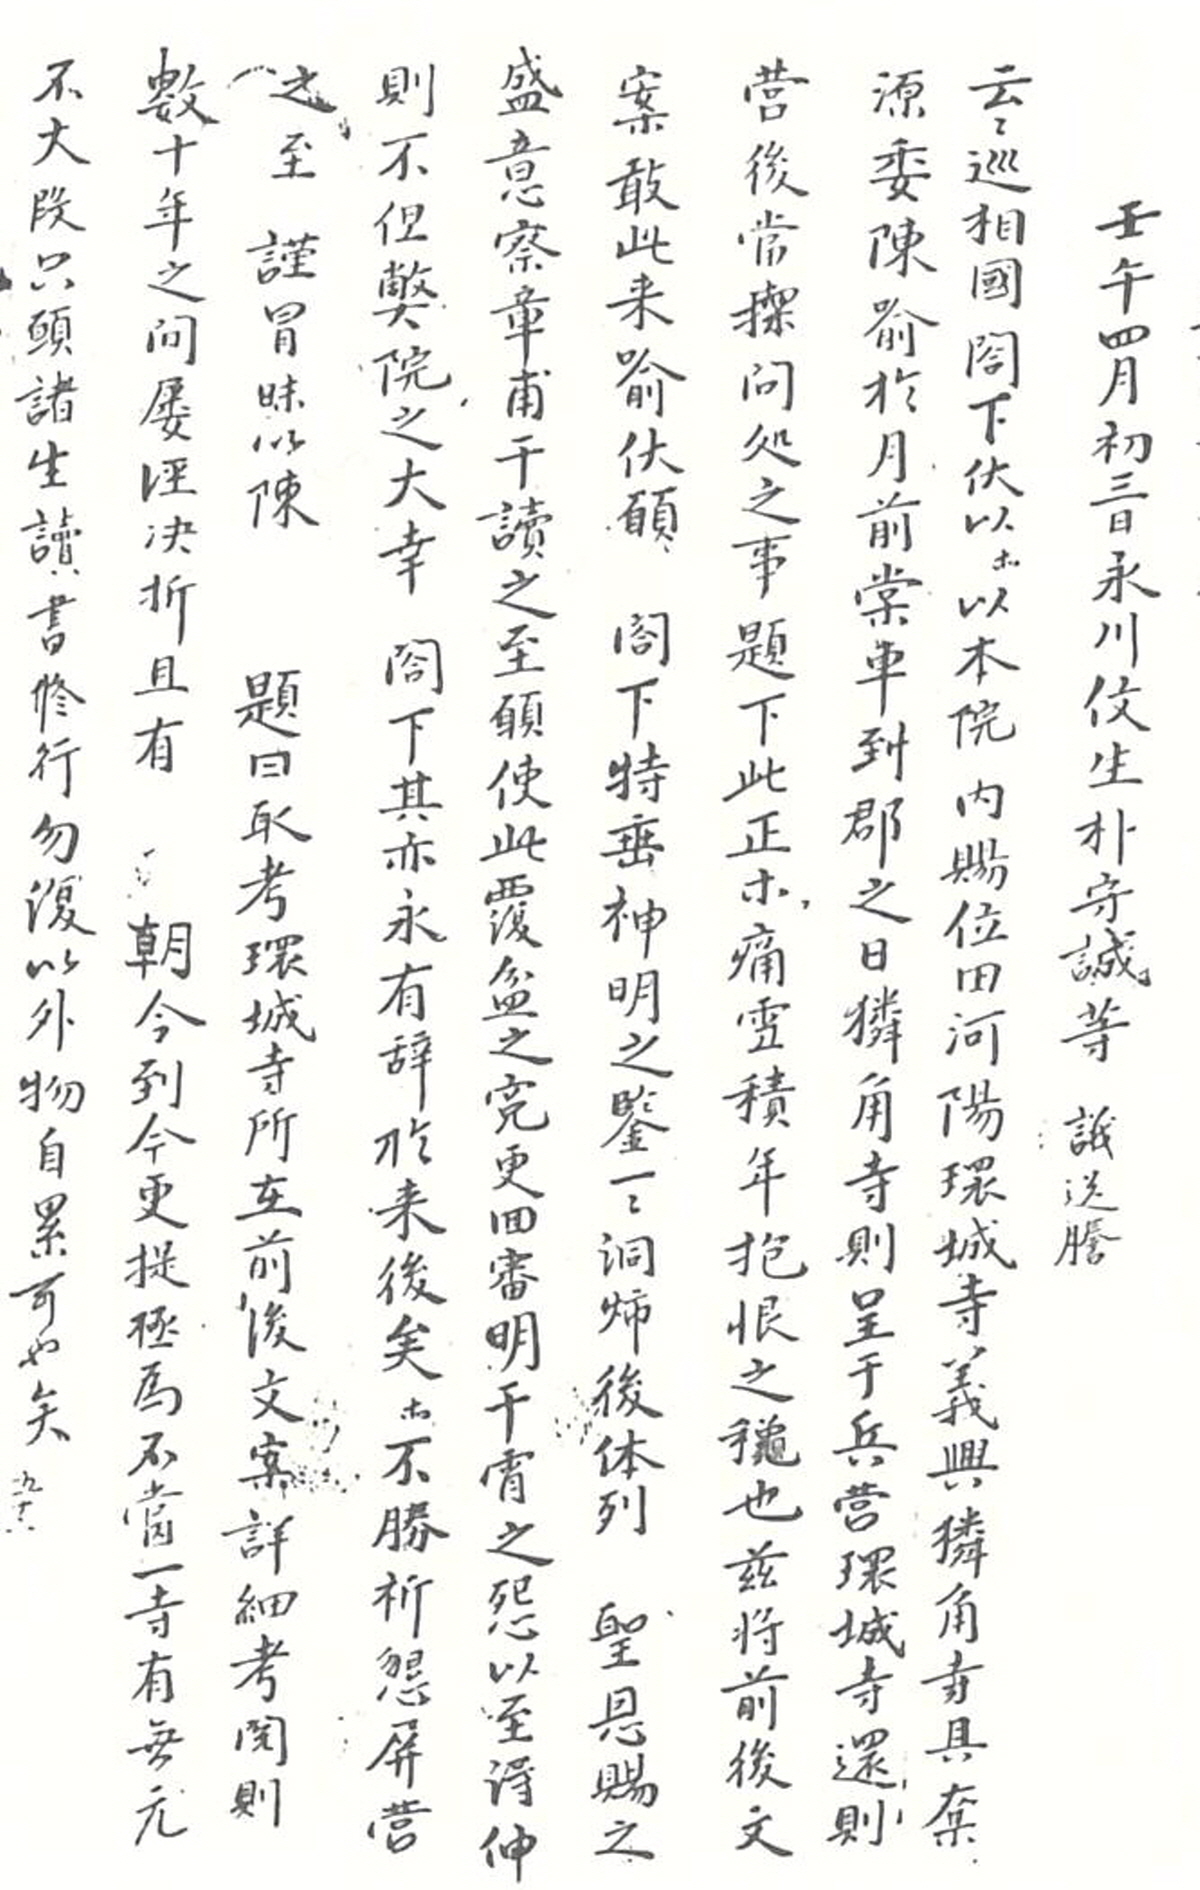 壬午四月初三日永川佼生朴守誠等 議送謄
云〻巡相國 閤下伏以等以本院 內賜位田河陽環城寺義興獜角寺具奪
源委陳喩於月前棠車到郡之日獜角寺則呈于兵營環城寺還則
营後當摞问処之事題下此正等痛寃積年抱恨之穐也兹将前後文
案敢此来喩伏願 閤下特垂神明之鑒一〻洞燭後体列 聖恩賜之
盛意察章甫干讀之至願使此覆盆之寃更囬審明干霄之怨以至淂伸
則不但弊院之大幸 閤下其亦永有辞於来後矣等不勝祈懇屏营
之至 謹冒昧以陳 題曰取考環城寺所在前後文案詳細考閱則
數十年之间屡徑决折且有 朝令到今更提極為不當一寺有無元
不大段只願諸生讀書修行勿復以外物自累可也矣 九十六